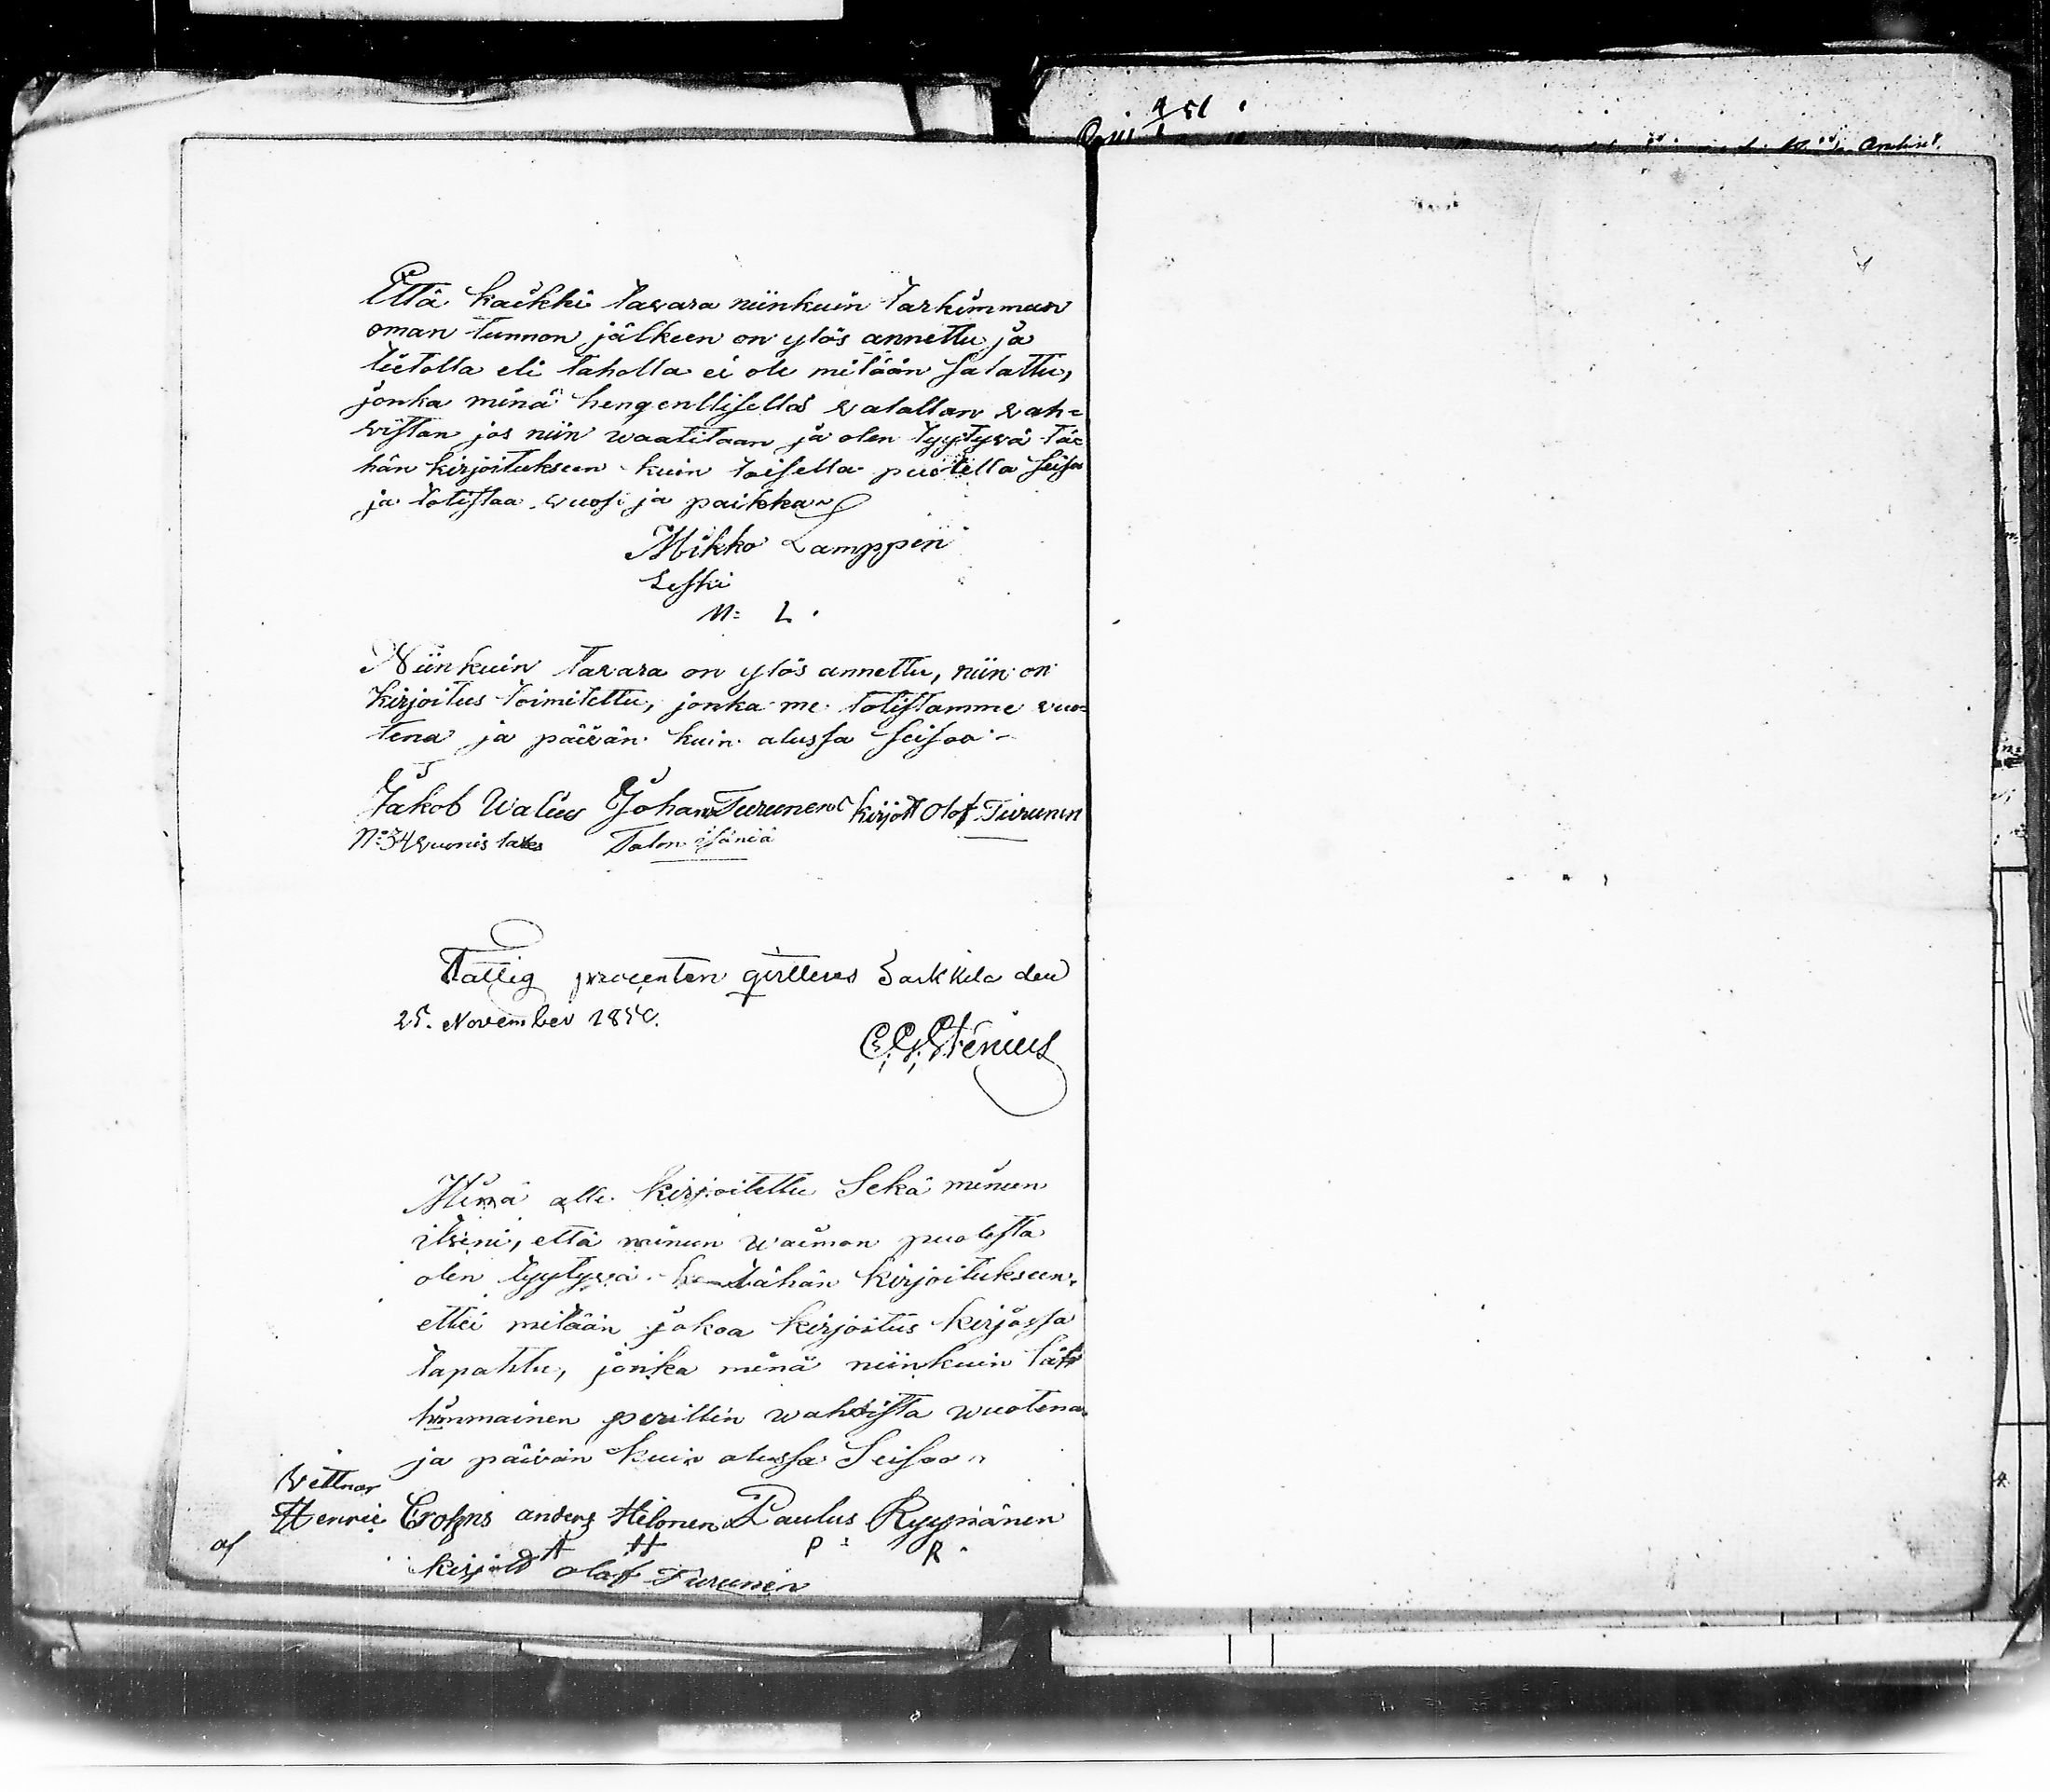 Että kaikki tavara niinkuin tarkimman
oman tunnon jälkeen on ylös annettu ja
tietolla eli taholla ei ole mitään salattu,
jonka minä hengenllisellä valallan vah=
vistan jos niin waatitaan ja olen tyytyvä tä=
hän kirjoitukseen kuin toisella puolella seiso
ja totistaa vuosi ja paikka
Mikko Lamppin
Leski
M: L.
Niinkuin tavara on ylös annettu, niin on
kirjoitus toimitettu, jonka me totistamme vuo=
tena ja päivän kuin alussa seisoo
Jakob Walius Johan Turunen kirjott Olof Turunen
No 34 Talon isäniä
Fattig procenten qvitteras Sarkkila den
25. November 1850.
C. G. Stenius
Minä alle kirjoitettu Sekä minun
itseni, että minun waimon puolesta
olen tyytyvä tähän kirjoitukseen,
ettei mitään jakoa kirjoitus kirjassa
tapahtu, jonka minä niinkuin läh
himmainen perillin wahvista wuotena
ja päivän kuin alussa Seisoo
Vettnar
Henric Crohns anders Hilonen Paulus Ryynänen
A H P: R.
af kirjold olof Turunen